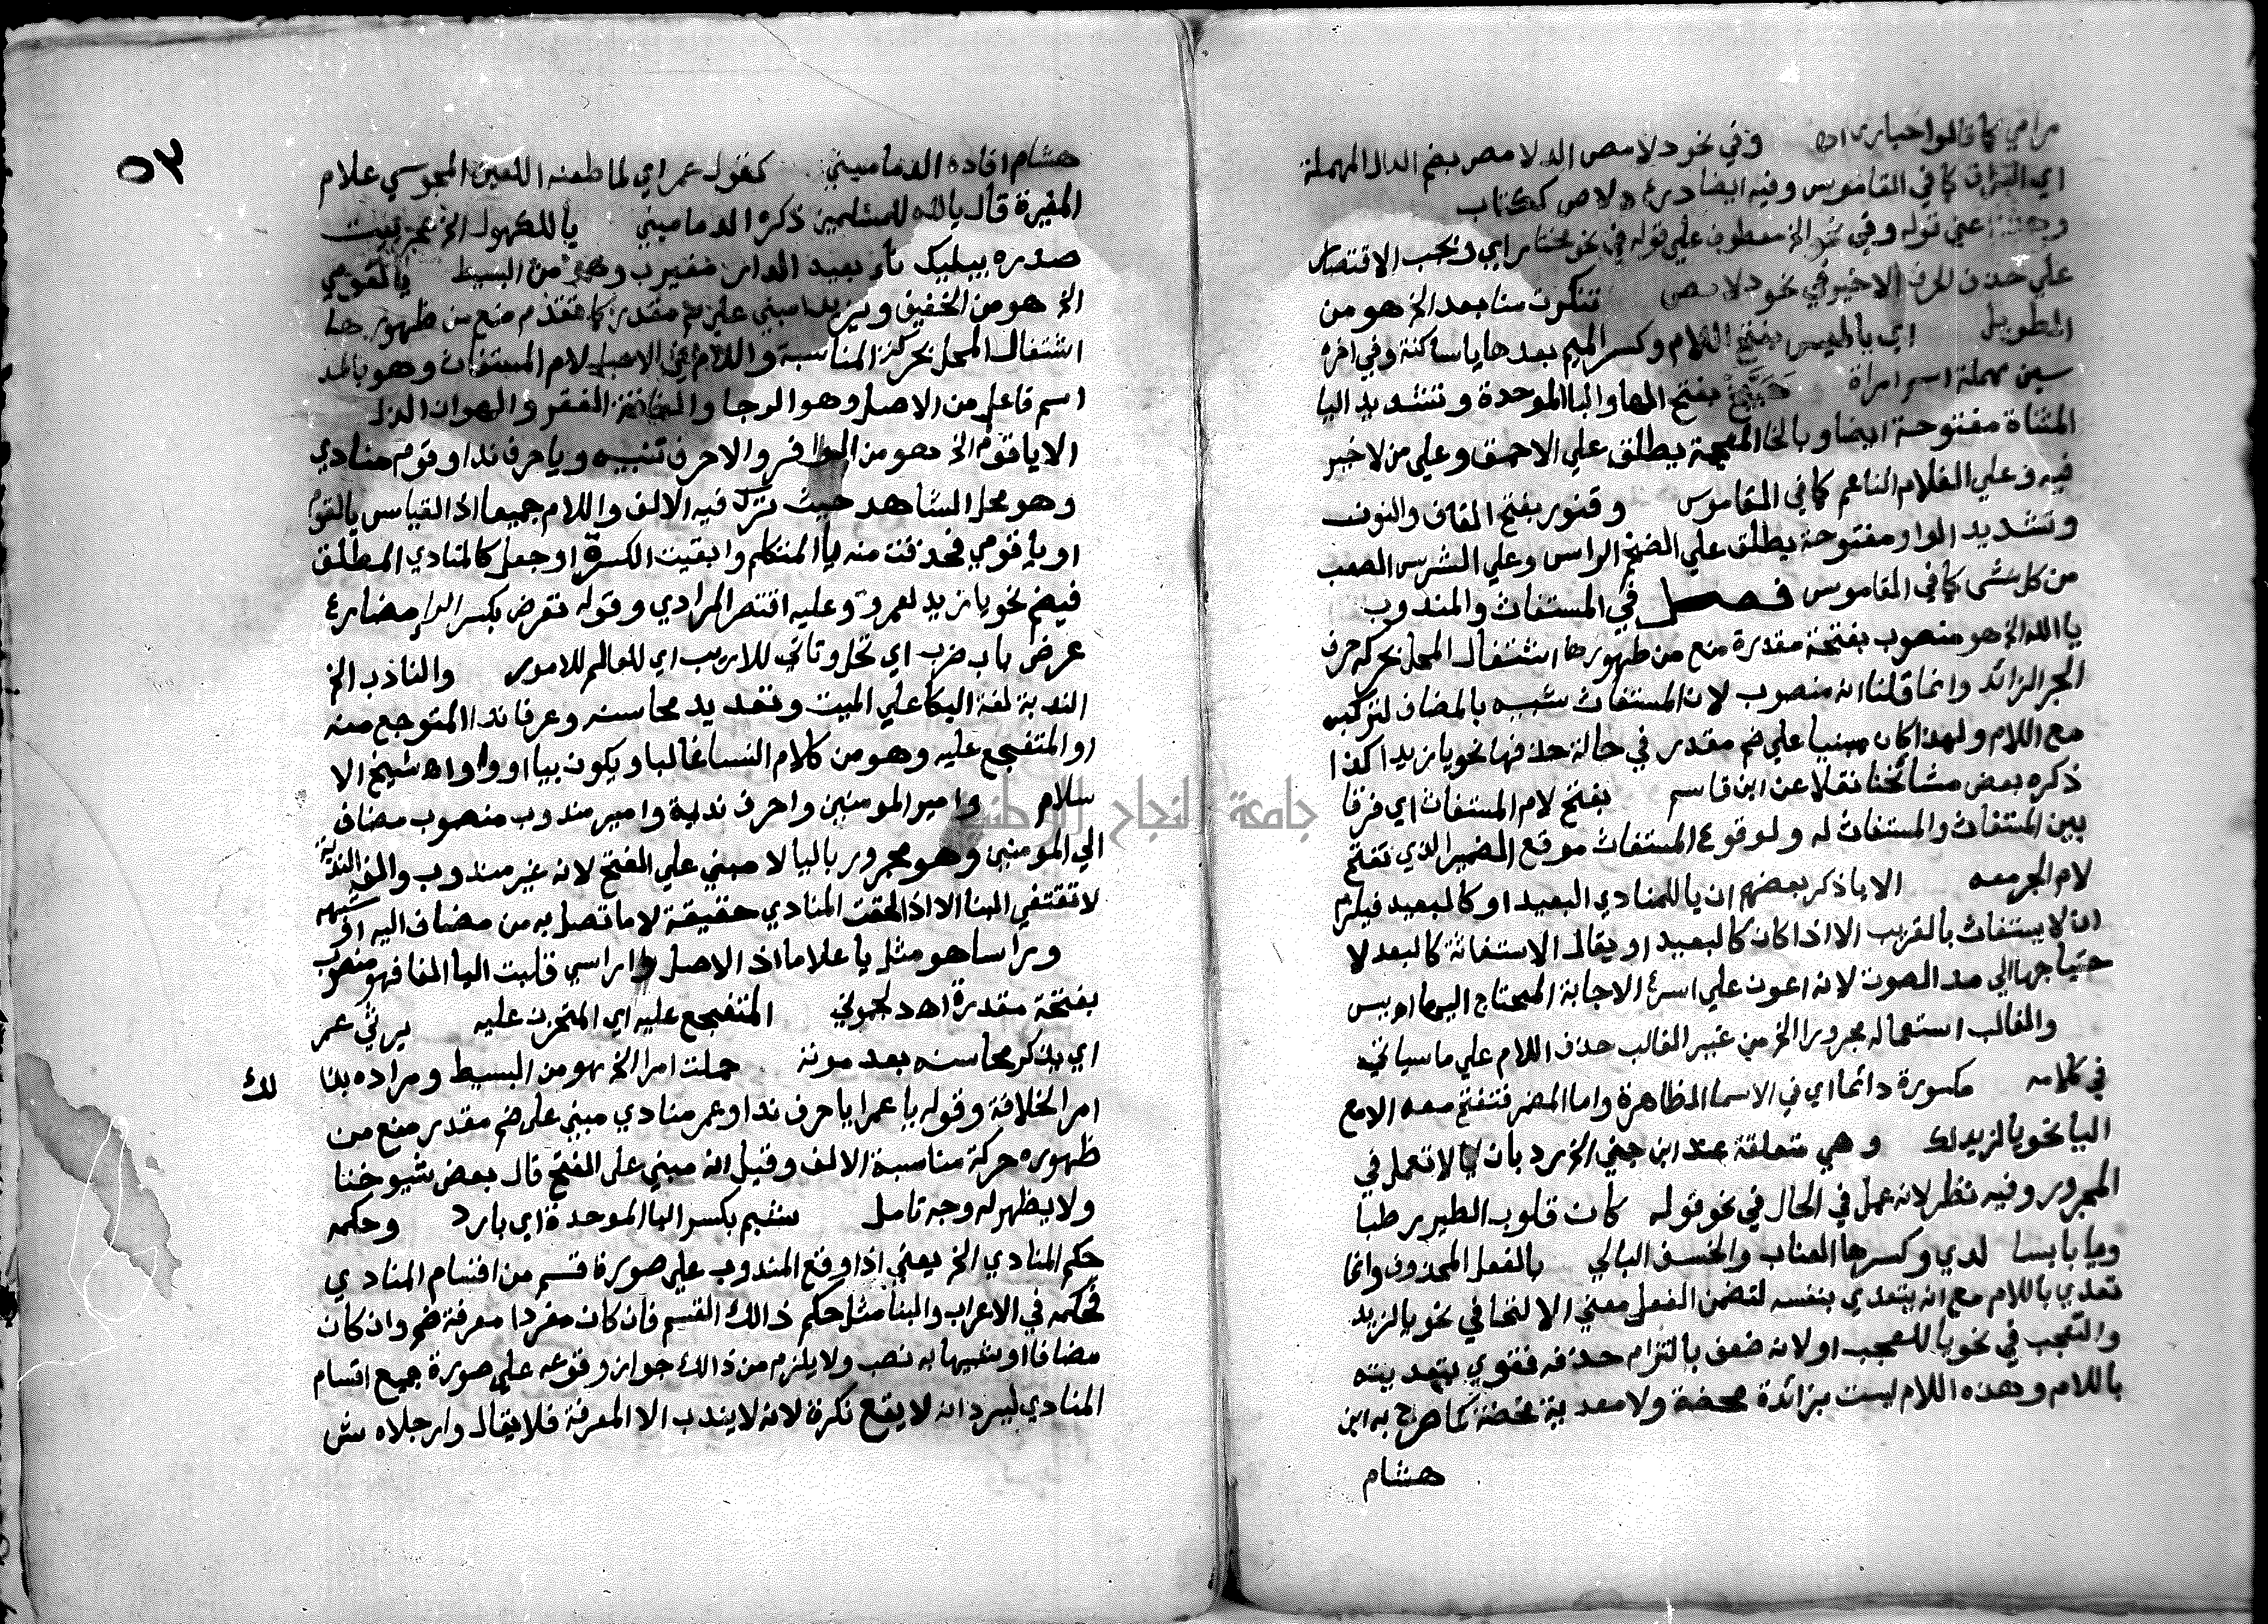 مرامي كما قالوا حباري اه وفي نحو دلامص الدلامص بضم الدال المهملة
اي البراق كما في القاموس وفيه ايضا درع دلاص ككتاب
وجملة اعني قوله وفي نحو الخ معطوف علي قوله في نحو مختار اي ويجب الاقتصار
علي حذف الحرف الاخير في نحو دلامص تنكرت منا بعد الخ هو من
الطويل اي يالميس بفتح اللام وكسر الميم بعدها ياساكنة وفي اخره
سين مهملة اسم امراة هبيخ بفتح الها والبا الموحدة وتشديد اليا
المثناة مفتوحة ايضا وبالخا المعجمة يطلق علي الاحمق وعلي من لا خير
فيه وعلي الغلام الناعم كما في القاموس وقنور بفتح القاف والنون
وتشديد الواو مفتوحة يطلق علي الضخم الراس وعلي الشرس الصعب
من كل شي كما في القاموس فصل في المستغاث والمندوب
يا الله الخ هو منصوب بفتحة مقدرة منع من ظهورها اشتغال المحل بحركة حرف
الجر الزائد وانما قلنا انه منصوب لان المستغاث شبيه بالمضاف لتركبه
مع اللام ولهذا كان مبنيا علي ضم مقدر في حالة حذفها نحو يا زيدا كذا
ذكره بعض مشائخنا نقلا عن ابن قاسم بفتح لام المستغاث اي فرقا
بين المستغاث والمستغاث له ولوقوع المستغاث موقع الضمير الذي تفتح
لام الجر معه الا يا ذكر بعضهم ان يا للمنادي البعيد او كالبعيد فيلزم
ان لا يستغاث بالقريب الا اذا كان كالبعيد او يقال الاستغاثة كالبعد لا
حتياجها الي مد الصوت لانه اعون علي اسرع الاجابة المحتاج اليها اه يس
والغالب استعماله مجرورا الخ من غير الغالب حذف اللام علي ما سياتي
في كلامه مكسورة دائما اي في الاسما الظاهرة واما المضمر فتفتح معه الا مع
اليا نحو يا لزيد لك وهي متعلقة عند ابن جني الخ رد بان يا لا تعمل في
المجرور وفيه نظر لانه عمل في الحال في نحو قوله كان قلوب الطير رطبا
ويابسا لدي وكرها العناب والحشف البالي بالفعل المحذوف وانما
تعدي باللام مع انه يتعدي بنفسه لتضمن الفعل معني الالتجا في نحو يا لزيد
والتعجب في نحو يا للعجب او لانه ضعف بالتزام حذفه فقوي بتعديته
باللام وهذه اللام ليست بزائدة محضة ولا معدية محضة كما صرح به ابن
هشام
٥٣
هشام افاده الدماميني كقول عمر اي لما طعنه اللعين المجوسي غلام
المغيرة قال يا لله للمسلمين ذكره الدماميني يا للكهول الخ عجز بيت
صدره يبكيك ناء بعيد الدار مغترب وهو من البسيط يا لقومي
الخ هو من الخفيف ويزيدا مبني علي ضم مقدر كما تقدم منع من ظهورها
اشتغال المحل بحركة المناسبة واللام لام المستغاث وهو بالمد
اسم فاعل من الاصل وهو الرجا والفاقة الفقر والهوان الذل
الا يا قوم الخ هو من الوافر والا حرف تنبيه ويا حرف ندا وقوم منادي
وهو محل الشاهد حيث ترك فيه الالف واللام جميعا اذ القياس يا لقوم
او يا قومي فحذفت منه يا المتكلم وابقيت الكسرة او جعل كالمنادي المطلق
فيضم نحو يا زيد لعمرو وعليه اقتصر المرادي وقوله تعرض بكسر الرا مضارع
عرض باب ضرب اي تحل وتاتي للاريب اي للعالم للامور والنادب الخ
الندبة لغة البكا علي الميت وتعديد محاسنه وعرفا ندا المتوجع منه
او المتفجع عليه وهو من كلام النسا غالبا ويكون بيا او وا اه شيخ الا
سلام وامير المومنين وا حرف ندبة وامير مندوب منصوب مضاف
الي المومنين وهو مجرور باليا لا مبني علي الفتح لانه غير مندوب والف الندبة
لا تقتضي البنا الا اذا لحقت المنادي حقيقة لا ما تصل به من مضاف اليه او شبهه
وراسا هو مثل يا غلاما اذ الاصل وا راسي قلبت اليا الفا فهو منصوب
بفتحة مقدرة اه دلجوني المتفجع عليه اي المتحزن عليه يرثي عمر
اي يذكر محاسنه بعد موته حملت امرا الخ هو من البسيط ومراده بذا لك
امر الخلافة وقوله يا عمرا يا حرف ندا وعمر منادي مبني علي ضم مقدر منع من
ظهوره حركة مناسبة الالف وقيل انه مبني علي الفتح قال بعض شيوخنا
ولا يظهر له وجه تامل شبم بكسر البا الموحدة اي بارد وحكمه
حكم المنادي الخ يعني اذا وقع المندوب علي صورة قسم من اقسام المنادي
فحكمه في الاعراب والبنا مثل حكم ذالك القسم فان كان مفردا معرفة ضم وان كان
مضافا او شبيها به نصب ولا يلزم من ذالك جواز وقوعه علي صورة جميع اقسام
المنادي ليرد انه لا يقع نكرة لانه لا يندب الا المعرفة فلا يقال وارجلاه ش
جامعة النجاح الوطنية